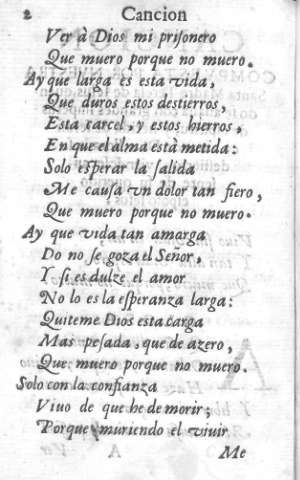 2 Cancion
Ver à Dios mi priſonero
Que muero porque no muero.
Ay que larga es esta vida,
Que duros estos destierros,
Esta carcel, y estos hierros,
En que el alma està metida:
Solo eſperar la ſalida
Me cauſa vn dolor tan fiero,
Que muero porque no muero.
Ay que vida tan amarga
Do no ſe goza el Señor,
Y ſi es dulze el amor
No lo es la eſperanza larga:
Quiteme Dios esta carga
Mas peſada, que de azero,
Que muero porque no muero.
Solo con la confianza
Viuo de que he de morir;
Porque muriendo el viuir
A Me